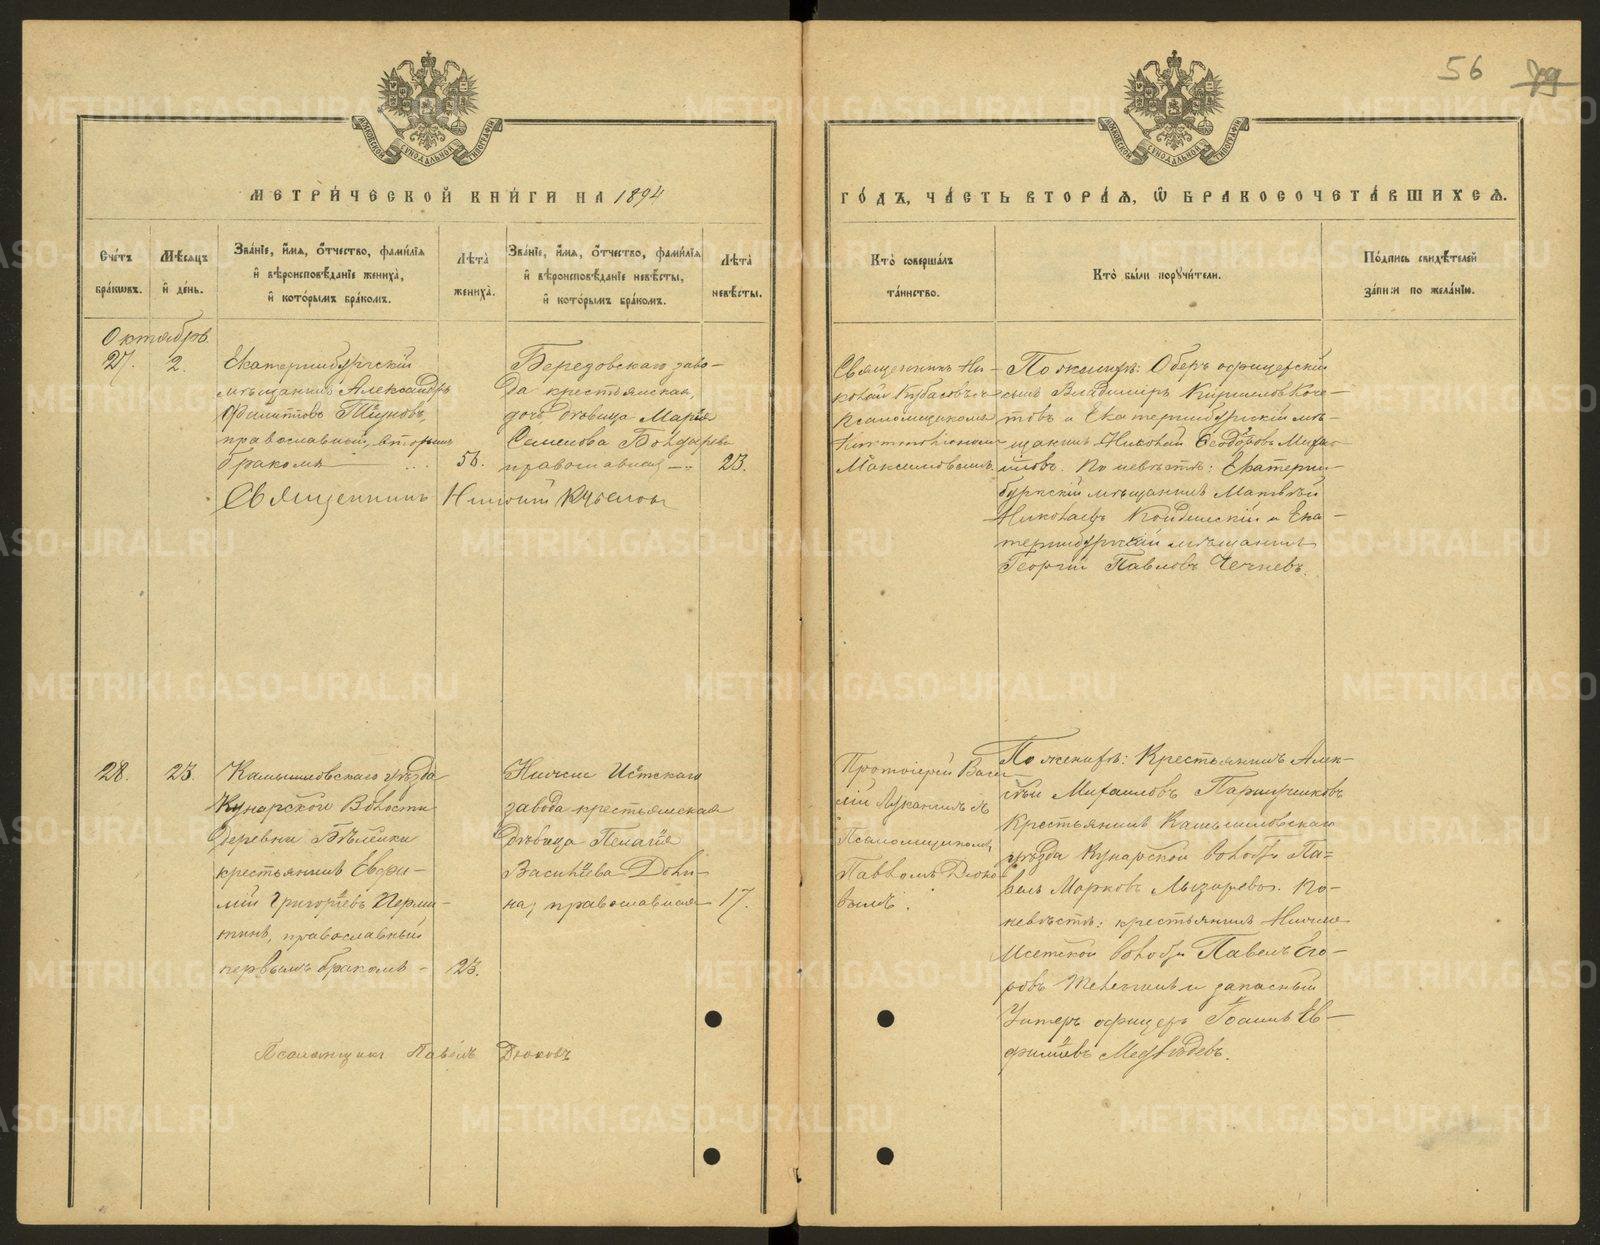 56 79
МОСКОВСКОЙ СѴНОДАЛЬНОЙ ТИПОГРАФІИ
МОСКОВСКОЙ СѴНОДАЛЬНОЙ ТИПОГРАФІИ
МЕТРИ́ЧЕСКОЙ КНИ́ГИ НА 1894
ГО́ДЪ, ЧА́СТЬ ВТОРА́Я, Ѿ БРАКОСОЧЕТА́ВШИХСЯ.
Сче́тъ
бра́ковъ.
Мѣ́сяцъ
и҆ де́нь.
Зва́нїе, и҆́мя, ѻ҆́тчество, фами́лїя
и҆ вѣроисповѣ́данїе жениха̀,
и҆ кото́рымъ бра́комъ.
Лѣ́та̀
жениха̀.
Зва́нїе, и҆́мя, ѻ҆́тчество, фами́лїя
и҆ вѣроисповѣ́данїе невѣ́сты,
и҆ кото́рымъ бра́комъ.
Лѣ́та̀
невѣ́сты.
Кто̀ соверша́лъ
та́инство.
Кто̀ бы́ли порꙋчи́тели.
По́дпись свидѣ́телей
за́писи по жела́нїю.
Октябрь
27. 2.
Екатеринбургскій
мѣщанинъ Александръ
Филипповъ
православный, вторымъ
бракомъ 56.
Березовскаго заво-
да крестьянская
дочь дѣвица Марія
Семенова Бондарева
православная 23.
Священникъ Ни-
колай
псаломщикомъ
Максимовскимъ
По женихѣ: Оберъ офицерскій
сынъ Владимиръ Кирилловъ
и Екатеринбургскій мѣ-
щанинъ Николай Ѳеодоровъ Михай-
ловъ. По невѣстѣ: Екатерин-
бургскій мѣщанинъ Матвѣй
Николаевъ и Ека-
теринбургскій мѣщанинъ
Георгій Павловъ
Священникъ Николай
28. 23.
Камышловскаго уѣзда
Кунарской Волости
деревни
крестьянинъ Евфи-
мій Григорьевъ Перми-
кинъ, православный
первымъ бракомъ 23.
Нижне Исетскаго
завода крестьянская
дѣвица Пелагія
Васильева
православная 17.
Протоіерей Васи-
лій Луканинъ съ
Псаломщикомъ
Павломъ Дюко-
вымъ.
По женихѣ: Крестьянинъ Алек-
сѣй Михаиловъ
Крестьянинъ Камышловскаго
уѣзда Кунарской волости Па-
велъ Марковъ По-
невѣстѣ: крестьянинъ Нижне
Исетской волости Павелъ Его-
ровъ и запасный
Унтеръ офицеръ Іоаннъ Ев-
фиміевъ Медвѣдевъ.
Псаломщикъ Павелъ Дюковъ
METRIKI.GASO-URAL.RU